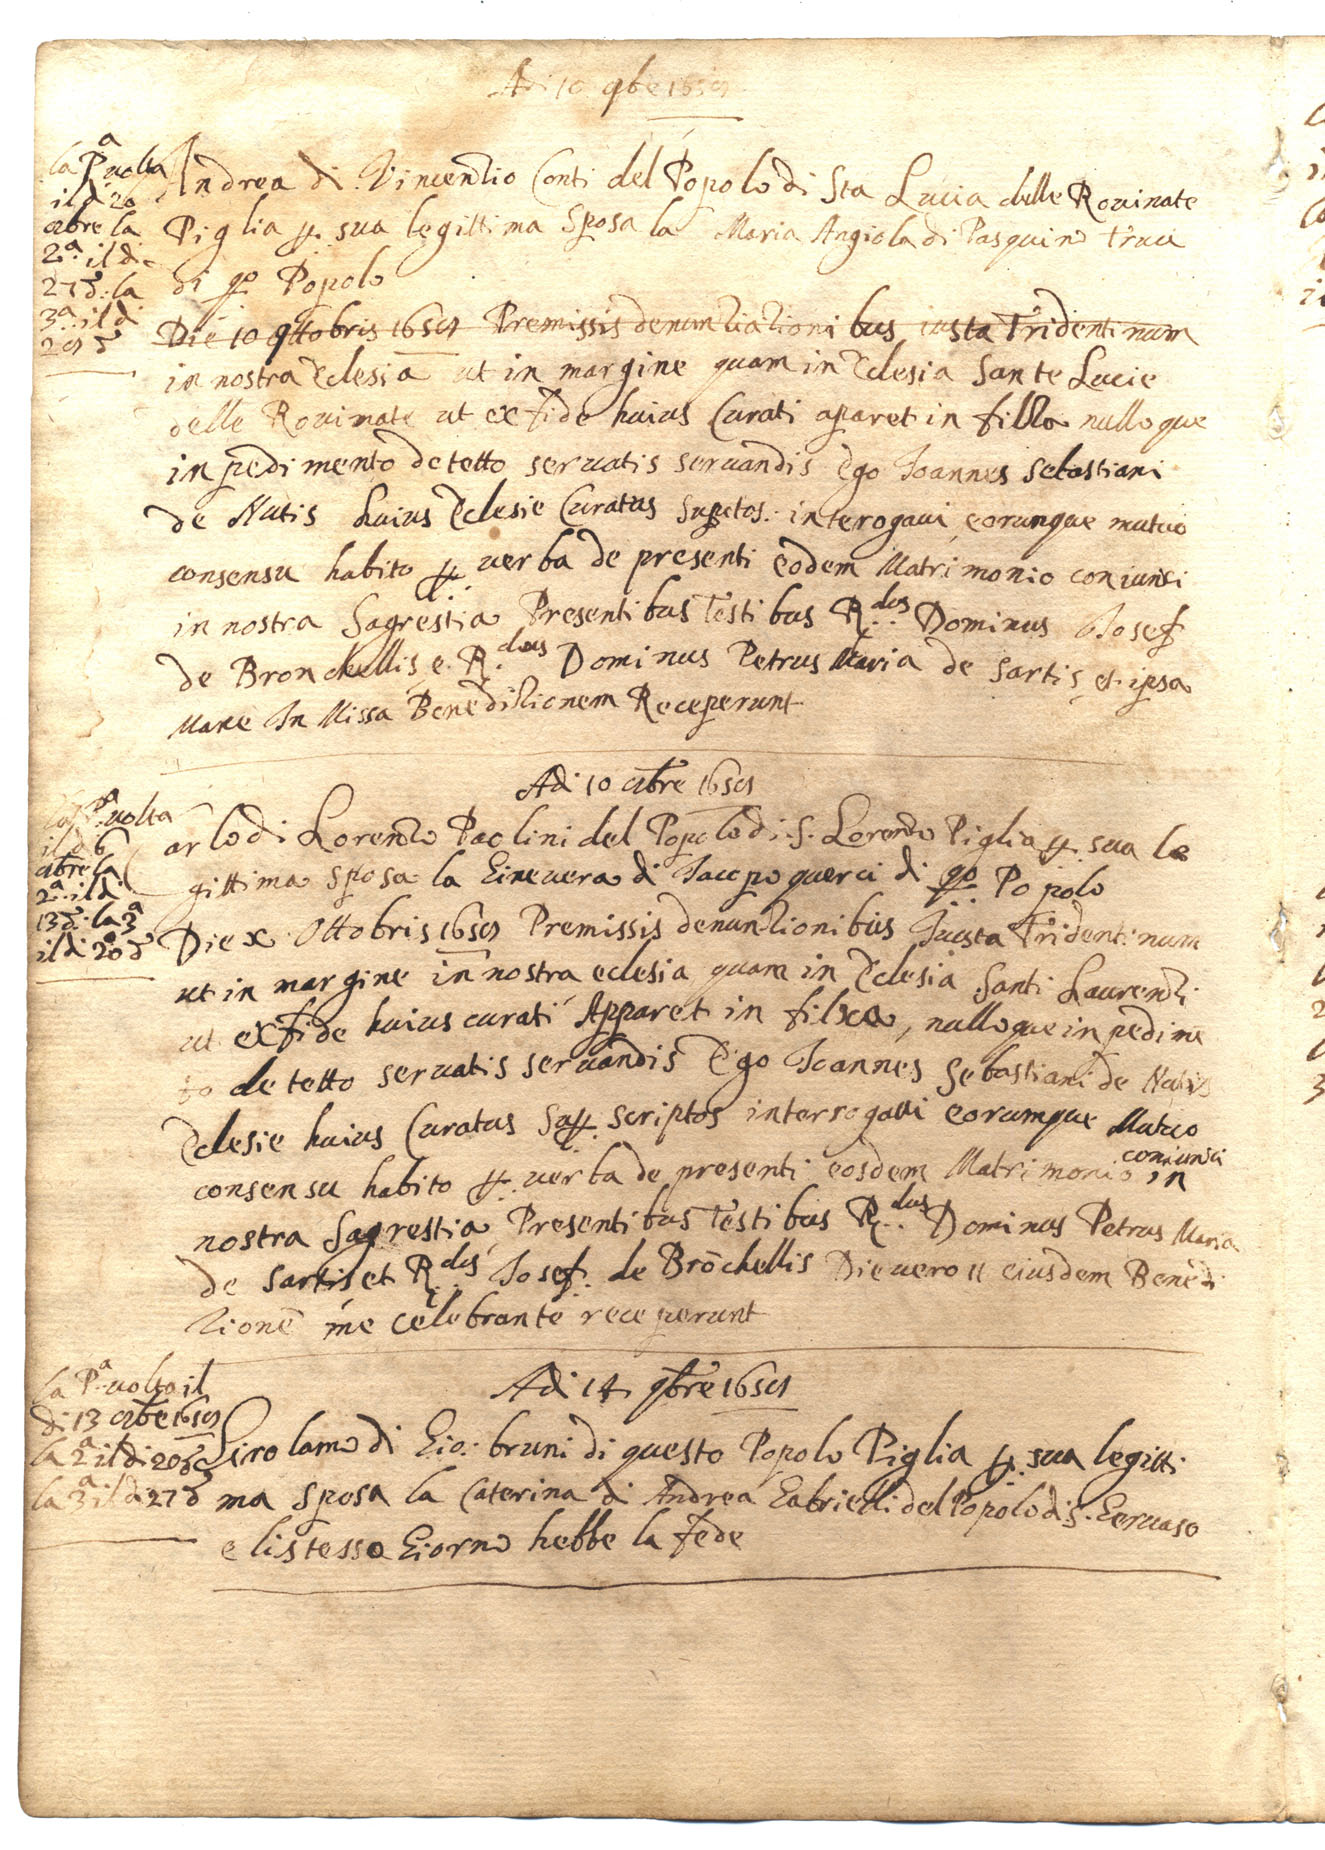 Adi 10 9bre 1659
la Pa volta
il di 20
8bre la
2a il di
27 d. la
3a il di
29 d
Andrea di Vincentio Conti del Popolo di Sta Lucia delle Rovinate
Piglia p. sua legittima Sposa la Maria Angiola di Pasquino
di qo Popolo
Die 10 9ttobris 1659 Premissis denuntiationibus iusta Tridentinum
in nostra Eclesia ut in margine quam in Eclesia Sante Lucie
delle Rovinate ut ex fide huius Curati aparet in filza nulloque
inpedimento detetto servatis servandis Ego Joannes Sebastiani
de Nutis huius Eclesie Curatus Supctos. interogavi eorunque mutuo
consensu habito p. verba de presenti eodem Matrimonio coniunsi
in nostra Sagrestia Presentibus Testibus R.dus Dominus Josef
de Bronchellis e R.dus Dominus Petrus Maria de Sartis et ipsa
Mane In Missa Beneditionem Receperunt
Adi 10 8bre 1659
la Pa volta
il di 6
8bre la
2a il di
13 d. la 3a
il di 20 d
Carlo di Lorenzo Paolini del Popolo di S. Lorenzo Piglia p. sua le
gittima sposa la Ginevera di Jacopo querci di qo Popolo
Die x Ottobris 1659 Premissis denuntionibus Justa Tridentinum
ut in margine in nostra eclesia quam in Eclesia Santi Laurenti
ut ex fide huius curati Apparet in filza, nulloque inpedime
to detetto servatis servandis Ego Joannes Sebastiani de Nutis
Eclesie huius Curatus Sup. scriptos interrogavi eorumque Mutuo
consensu habito p. verba de presenti eosdem Matrimonio coniunsi in
nostra Sagrestia Presentibus Testibus R.dus Dominus Petrus Maria
de Sartis et R.dus Josef. de Brōchellis Die vero 11 eiusdem Benedi
tionē me celebrante receperunt
la Pa volta il
di 13 8bre 1659
la 2a il di 20 d
la 3a il di 27 d
Adi 14 9bre 1659
Girolamo di Gio: bruni di questo Popolo Piglia p. sua legitti
ma sposa la Caterina di Andrea Gabrielli del Popolo di S. Gervaso
e listesso Giorno hebbe la fede